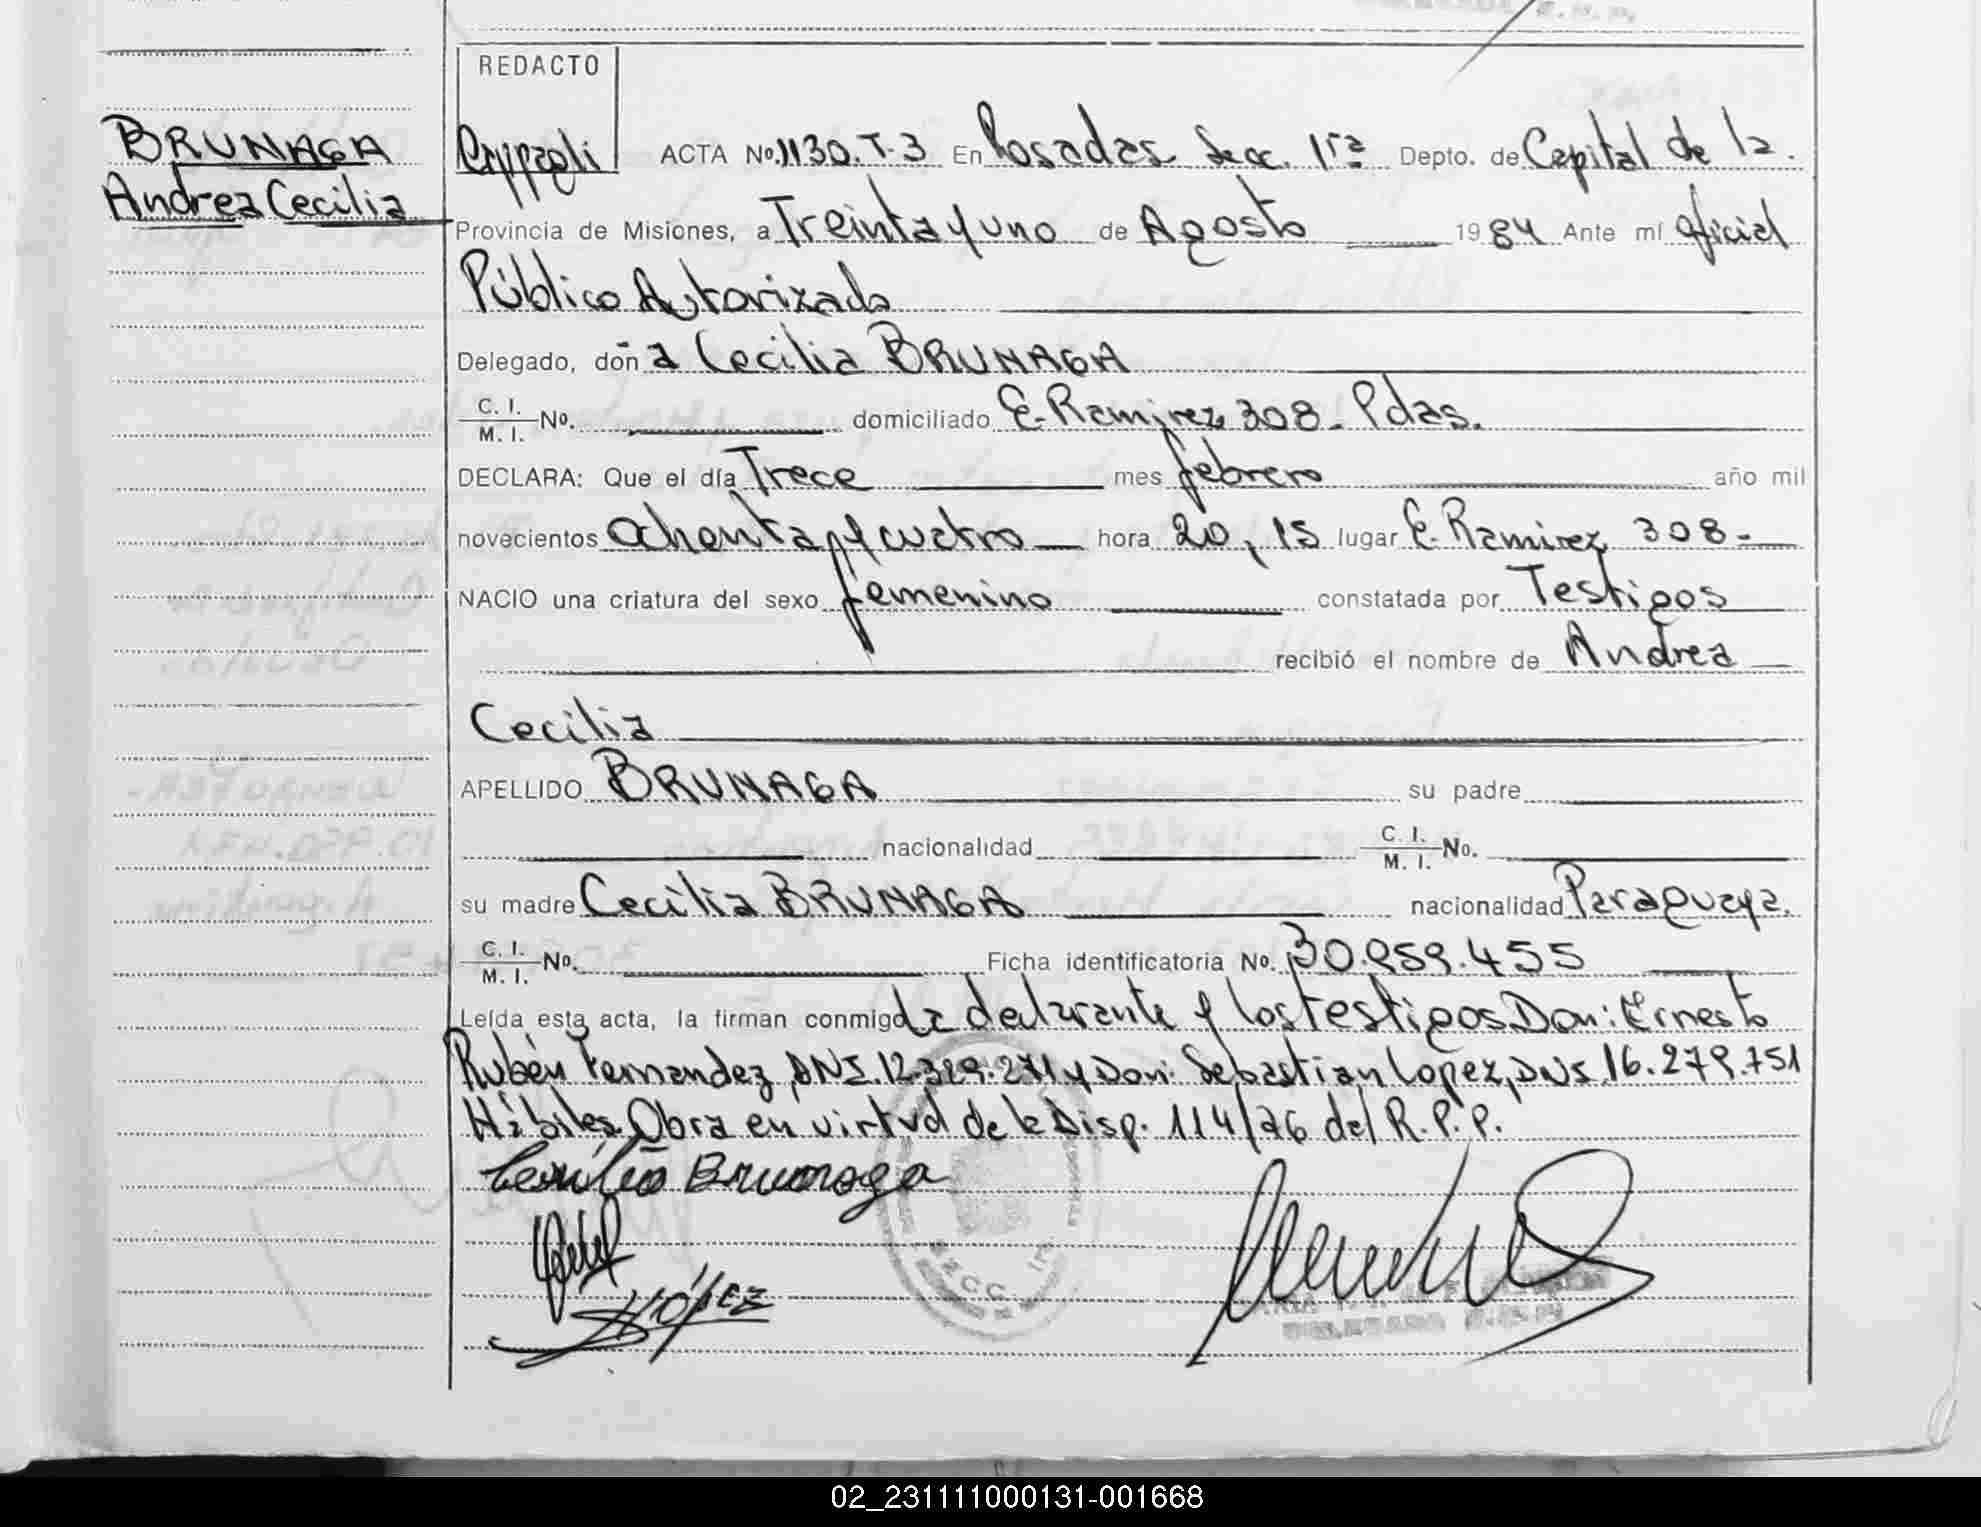 REDACTO
BRUNAGA
Andrea Cecilia
ACTA No. 1130. T-3 En Posadas Secc. 1ra Depto. de Capital de la
Provincia de Misiones, a Treinta y uno de Agosto 1984 Ante mí oficial
Público Autorizado
Delegado, don a Cecilia BRUNAGA
C. I. M. I. No. domiciliado E. Ramirez 308 - Pdas.
DECLARA: Que el día Trece mes febrero año mil
novecientos ochenta y cuatro hora 20,15 lugar E. Ramirez 308-
NACIO una criatura del sexo femenino constatada por Testigos
recibió el nombre de Andrea
Cecilia
APELLIDO BRUNAGA su padre
nacionalidad C. I. M. I. No.
su madre Cecilia BRUNAGA nacionalidad Paraguaya.
C. I. M. I. No. Ficha identificatoria No. 30.959.455
Leída esta acta, la firman conmigo la declarante y los testigos Don: Ernesto
Rubén Fernandez, DNI. 12.329.271 y Don: Sebastian Lopez, DNI. 16.279.751
Hábiles. Obra en virtud de la Disp. 114/76 del R.P.P.
Cecilia Brunaga
López
02_231111000131-001668